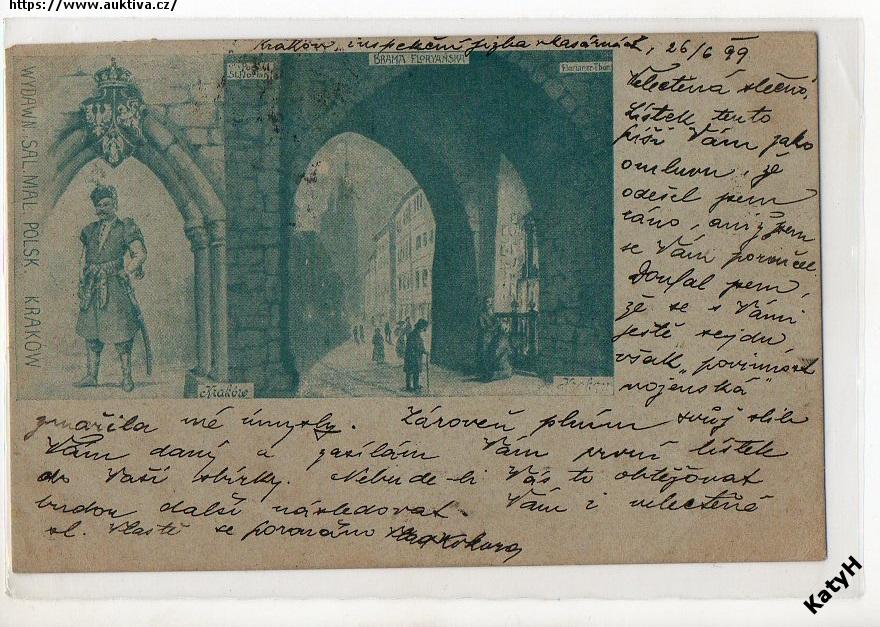 https://www.auktiva.cz/
Kraków, inspekční jizba v kasárnách, 26/6 99
BRAMA FLORYAŃSKA
Florianer-Thor
WYDAWN. SAL. MAL. POLSK. KRAKÓW
Kraków
Velectěná slečno,
Lístek tento
píši Vám jako
omluvu, že
odešel jsem
ráno, aniž jsem
se Vám poroučel.
Doufal jsem,
že se s Vámi
ještě sejdu
však "povinnost
vojenská"
zmařila mé úmysly. Zároveň plním svůj slib
Vám daný a zasílám Vám první lístek
do Vaší sbírky. Nebude-li Vás to obtěžovat
budou další následovat Vám i velectěné
sl. Vlastě se poroučím
KatyH